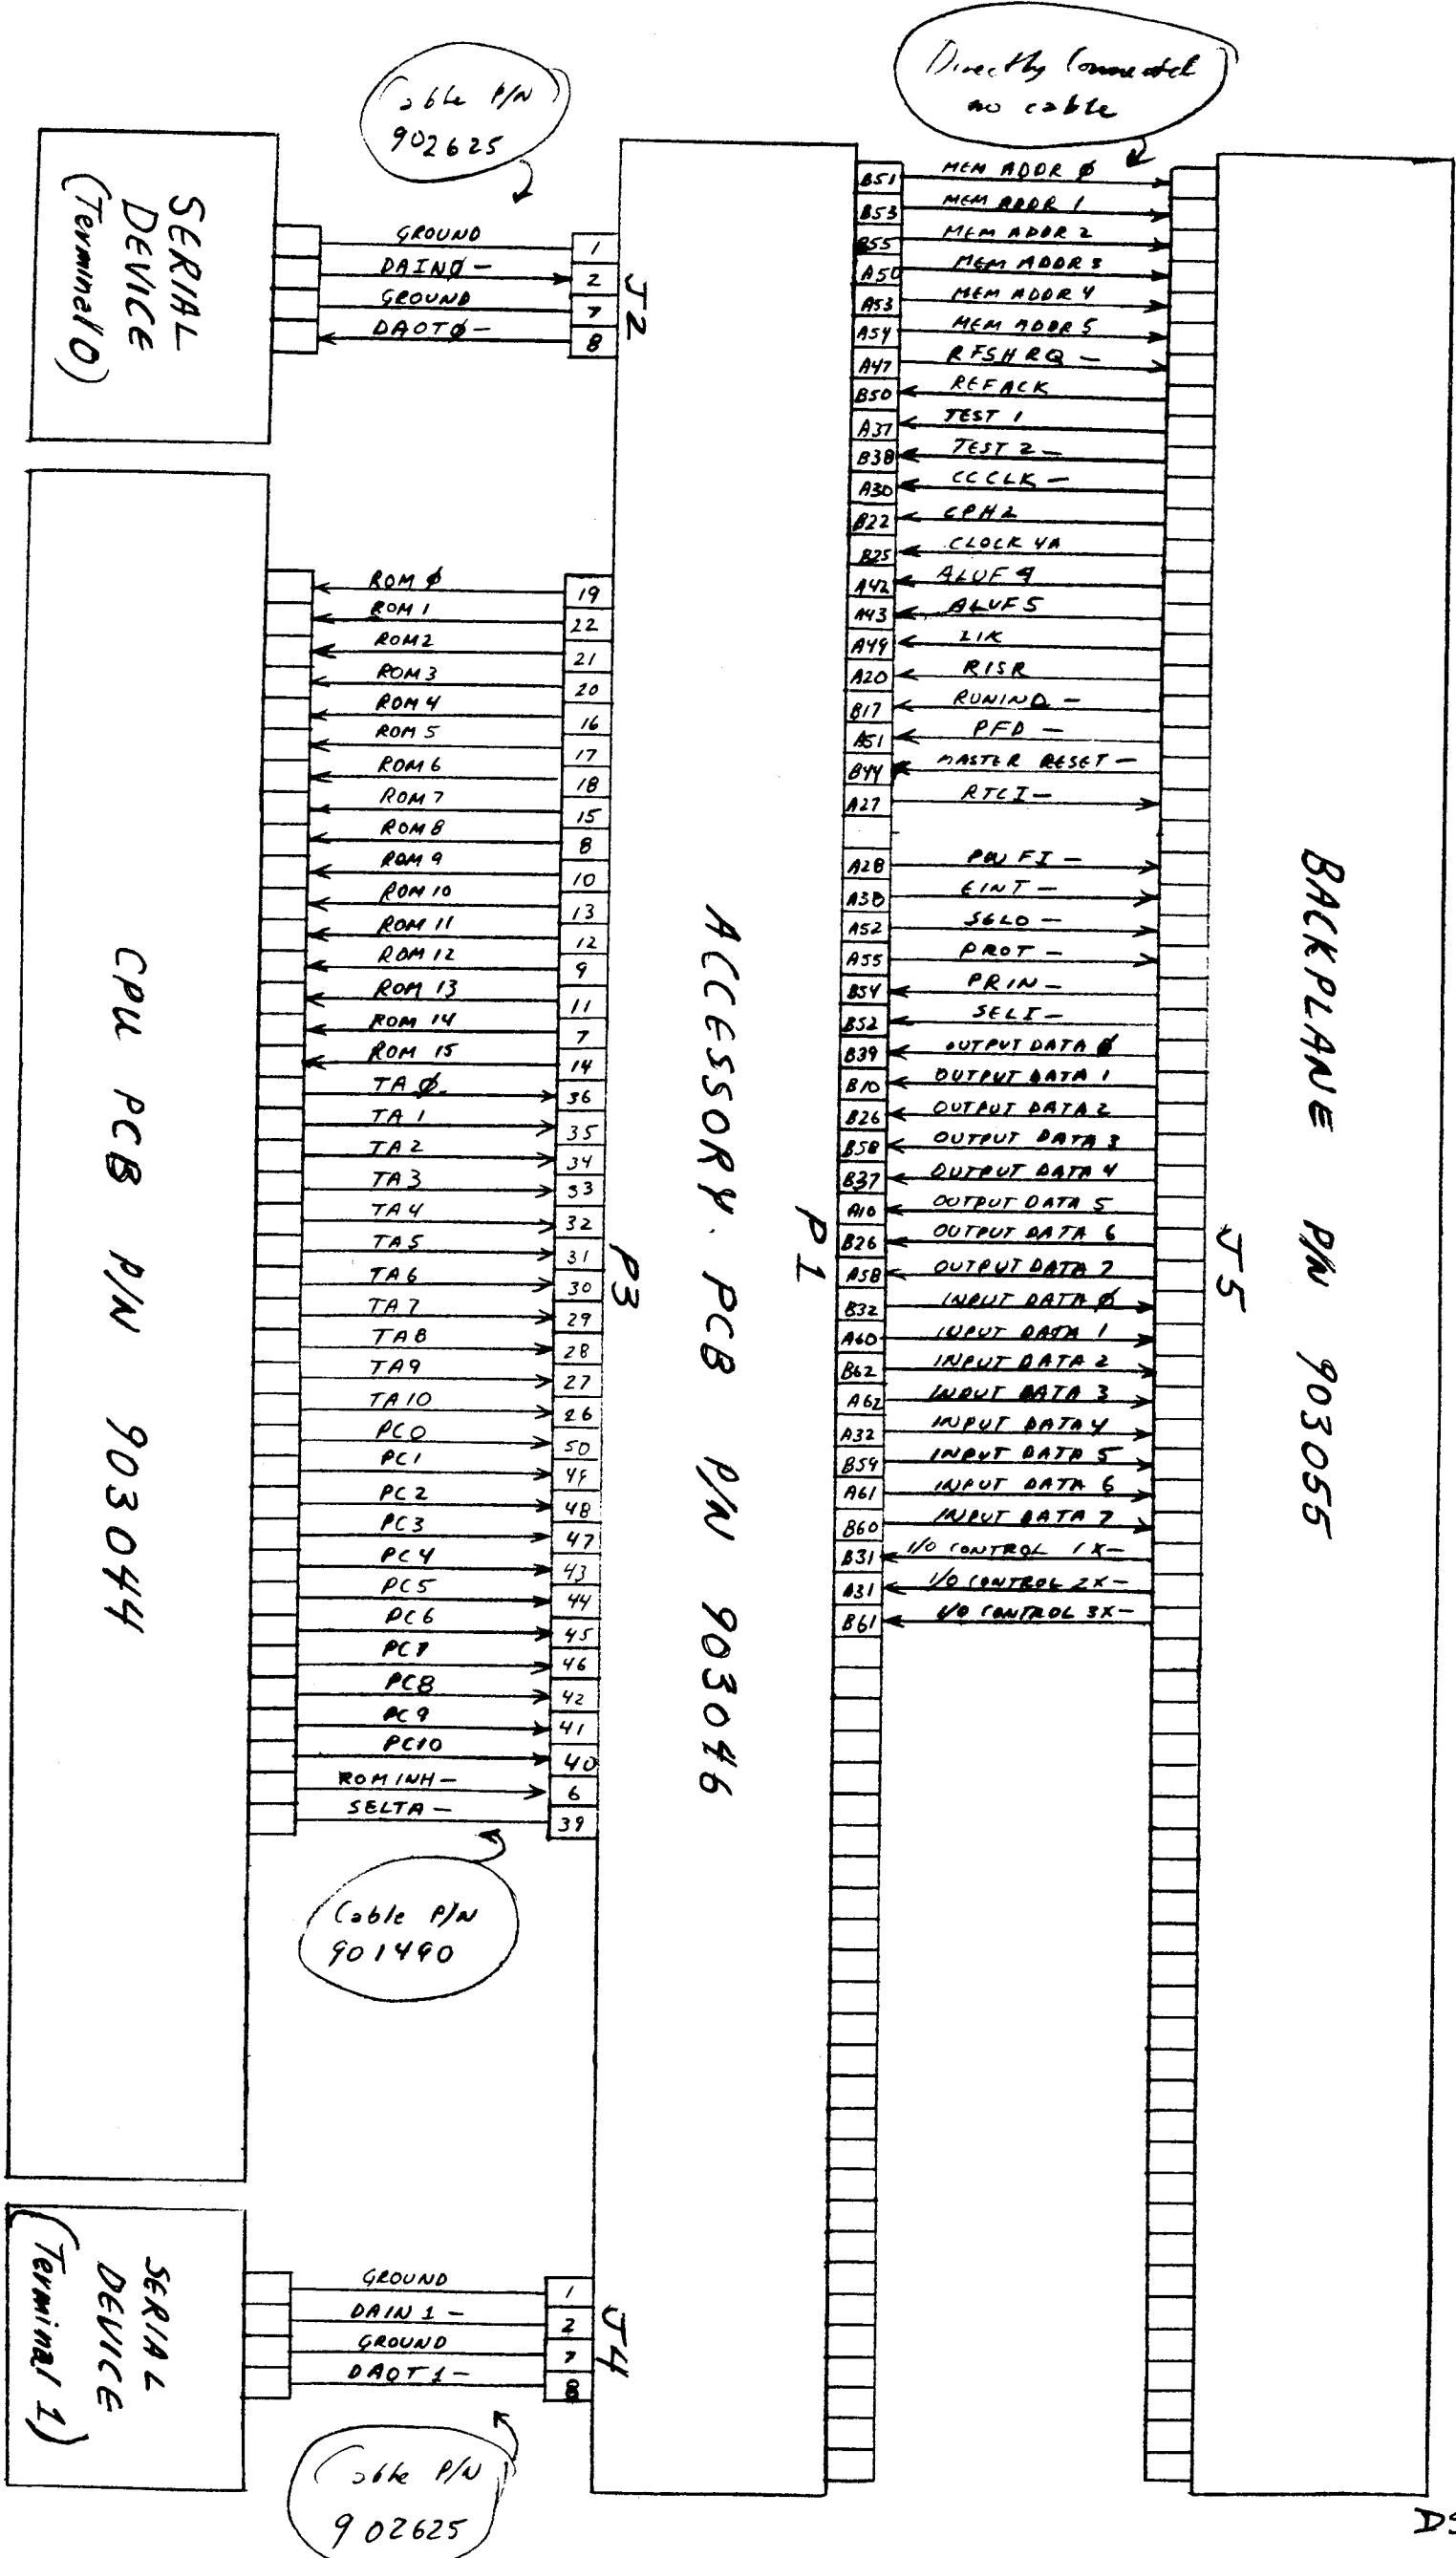 Directly Connected
no cable
Cable P/N
902625
SERIAL
DEVICE
(Terminal 0)
GROUND
1
DAINØ-
2
GROUND
7
DAOTØ-
8
J2
CPU PCB P/N 903044
ROM Ø
19
ROM 1
22
ROM2
21
ROM 3
20
ROM 4
16
ROM 5
17
ROM 6
18
ROM 7
15
ROM 8
8
ROM 9
10
ROM 10
13
ROM 11
12
ROM 12
9
ROM 13
11
ROM 14
7
ROM 15
14
TA Ø
36
TA 1
35
TA 2
34
TA 3
33
TA 4
32
TA 5
31
TA 6
30
TA 7
29
TA8
28
TA9
27
TA10
26
PC0
50
PC1
49
PC2
48
PC3
47
PC4
43
PC5
44
PC6
45
PC7
46
PC8
42
PC9
41
PC10
40
ROM INH-
6
SELTA-
39
P3
Cable P/N
901490
SERIAL
DEVICE
(Terminal 1)
GROUND
1
DAIN 1-
2
GROUND
7
DAOT 1-
8
J4
Cable P/N
902625
ACCESSORY. PCB P/N 903046
P1
B51 MEM ADDR Ø
B53 MEM ADDR 1
B55 MEM ADDR 2
A50 MEM ADDR 3
A53 MEM ADDR 4
A54 MEM ADDR 5
A47 RFSH RQ -
B50 REFACK
A37 TEST 1
B38 TEST 2-
A30 CCCLK-
B22 CPH2
B25 CLOCK 4A
A42 ALUF 4
A43 ALUF 5
A49 LIK
A20 RISR
B17 RUNIND-
A51 PFD-
B44 MASTER RESET-
A27 RTCI-
A28 PWFI-
A38 EINT-
A52 SGLO-
A55 PROT-
B54 PRIN-
B52 SELI-
B39 OUTPUT DATA Ø
B10 OUTPUT DATA 1
B26 OUTPUT DATA 2
B58 OUTPUT DATA 3
B37 OUTPUT DATA 4
A10 OUTPUT DATA 5
B26 OUTPUT DATA 6
A58 OUTPUT DATA 7
B32 INPUT DATA Ø
A60 INPUT DATA 1
B62 INPUT DATA 2
A62 INPUT DATA 3
A32 INPUT DATA 4
B59 INPUT DATA 5
A61 INPUT DATA 6
B60 INPUT DATA 7
B31 I/O CONTROL 1X-
A31 I/O CONTROL 2X-
B61 I/O CONTROL 3X-
J5
BACKPLANE P/N 903055